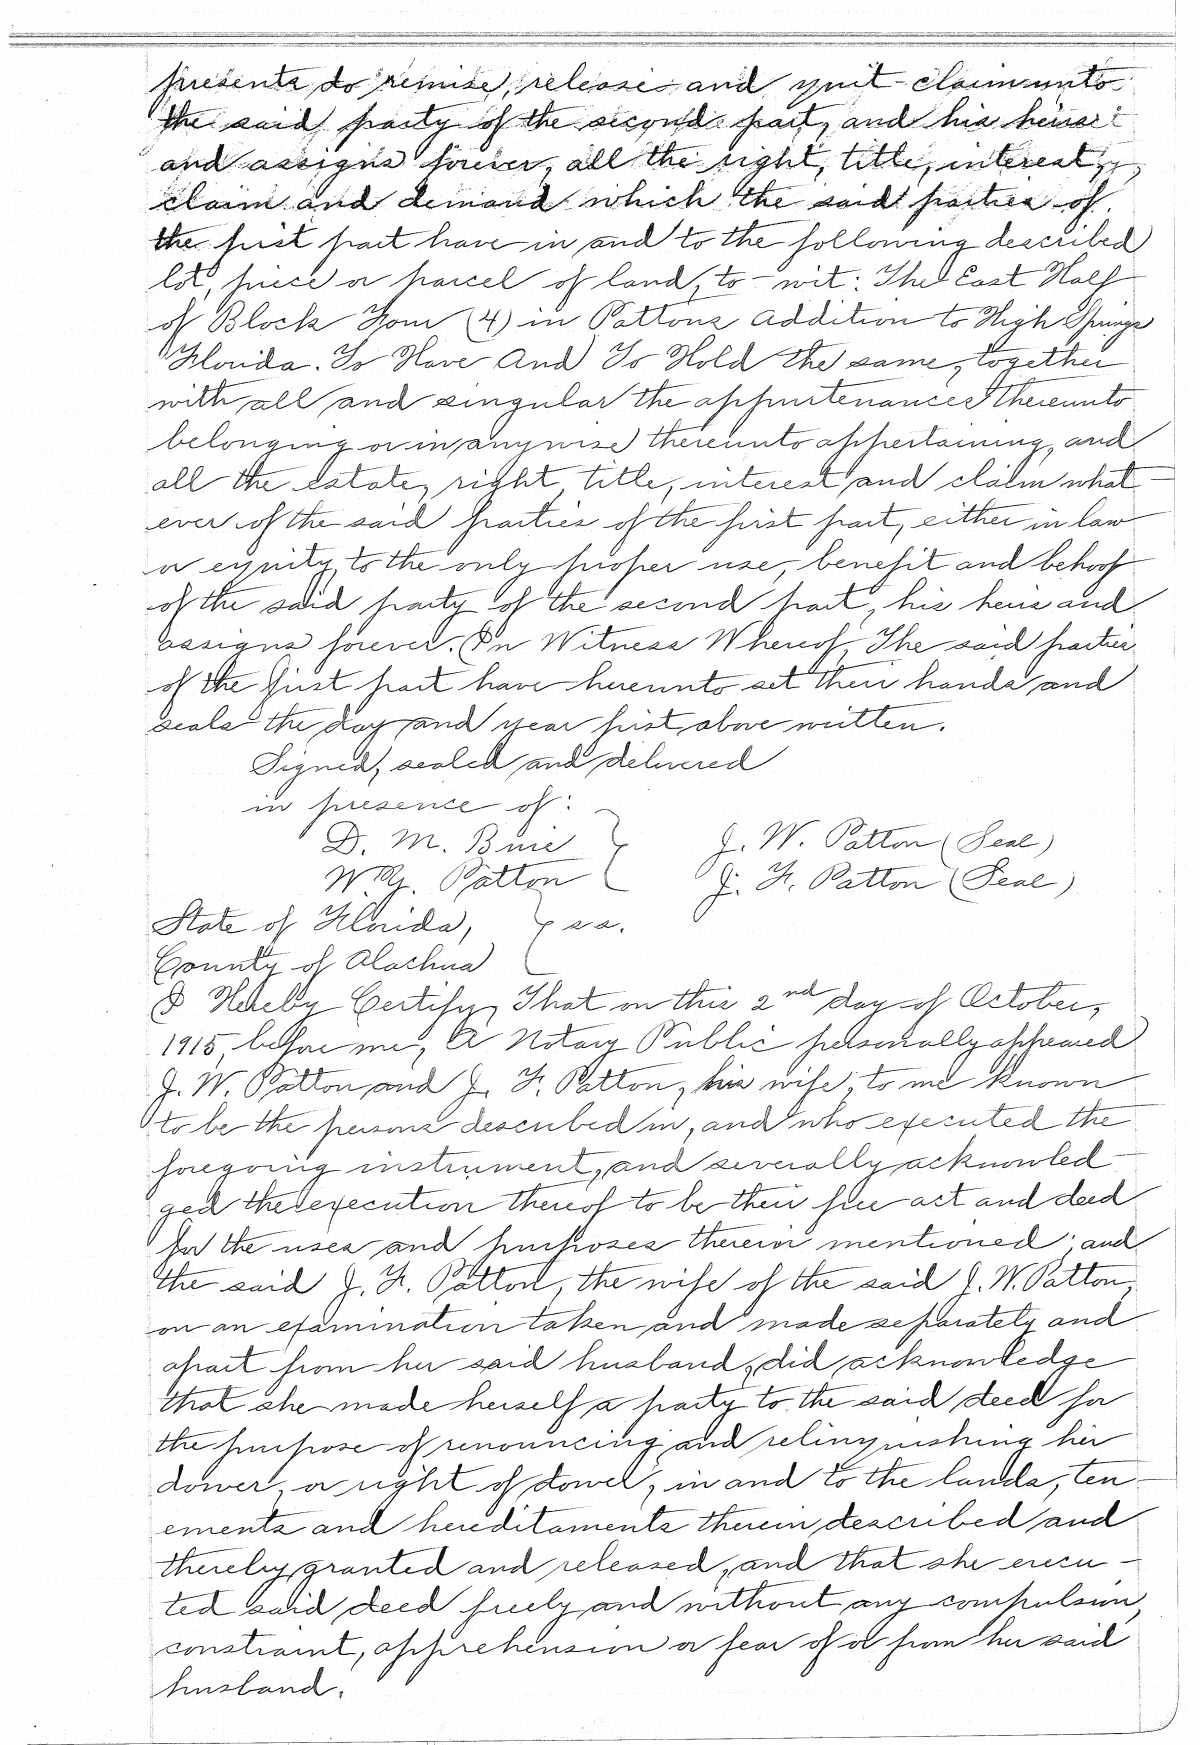 presents do remise, release and quit-claim unto
the said party of the second part, and his heirs
and assigns forever, all the right, title, interest,
claim and demand which the said parties of
the first part have in and to the following described
lot, piece or parcel of land, to-wit: The East Half
of Block Four (4) in Pattons Addition to High Springs
Florida. To Have And To Hold the same, together
with all and singular the appurtenances thereunto
belonging or in anywise thereunto appertaining, and
all the estate, right, title, interest and claim what-
ever of the said parties of the first part, either in law
or equity, to the only proper use, benefit and behoof
of the said party of the second part, his heirs and
assigns forever. In Witness Whereof, The said parties
of the first part have hereunto set their hands and
seals the day and year first above written.
Signed, sealed and delivered
in presence of:
D. M. Buie } J. W. Patton (Seal)
W. Y. Patton J. F. Patton (Seal)
State of Florida, } ss.
County of Alachua
I Hereby Certify, That on this 2nd day of October,
1915, before me, A Notary Public personally appeared
J. W. Patton and J. F. Patton, his wife, to me known
to be the persons described in, and who executed the
foregoing instrument, and severally acknowled-
ged the execution thereof to be their free act and deed
for the uses and purposes therein mentioned; and
the said J. F. Patton, the wife of the said J. W. Patton,
on an examination taken and made separately and
apart from her said husband, did acknowledge
that she made herself a party to the said deed for
the purpose of renouncing and relinquishing her
dower, or right of dower, in and to the lands, ten-
ements and hereditaments therein described and
thereby granted and released, and that she execu-
ted said deed freely and without any compulsion,
constraint, apprehension or fear of or from her said
husband.